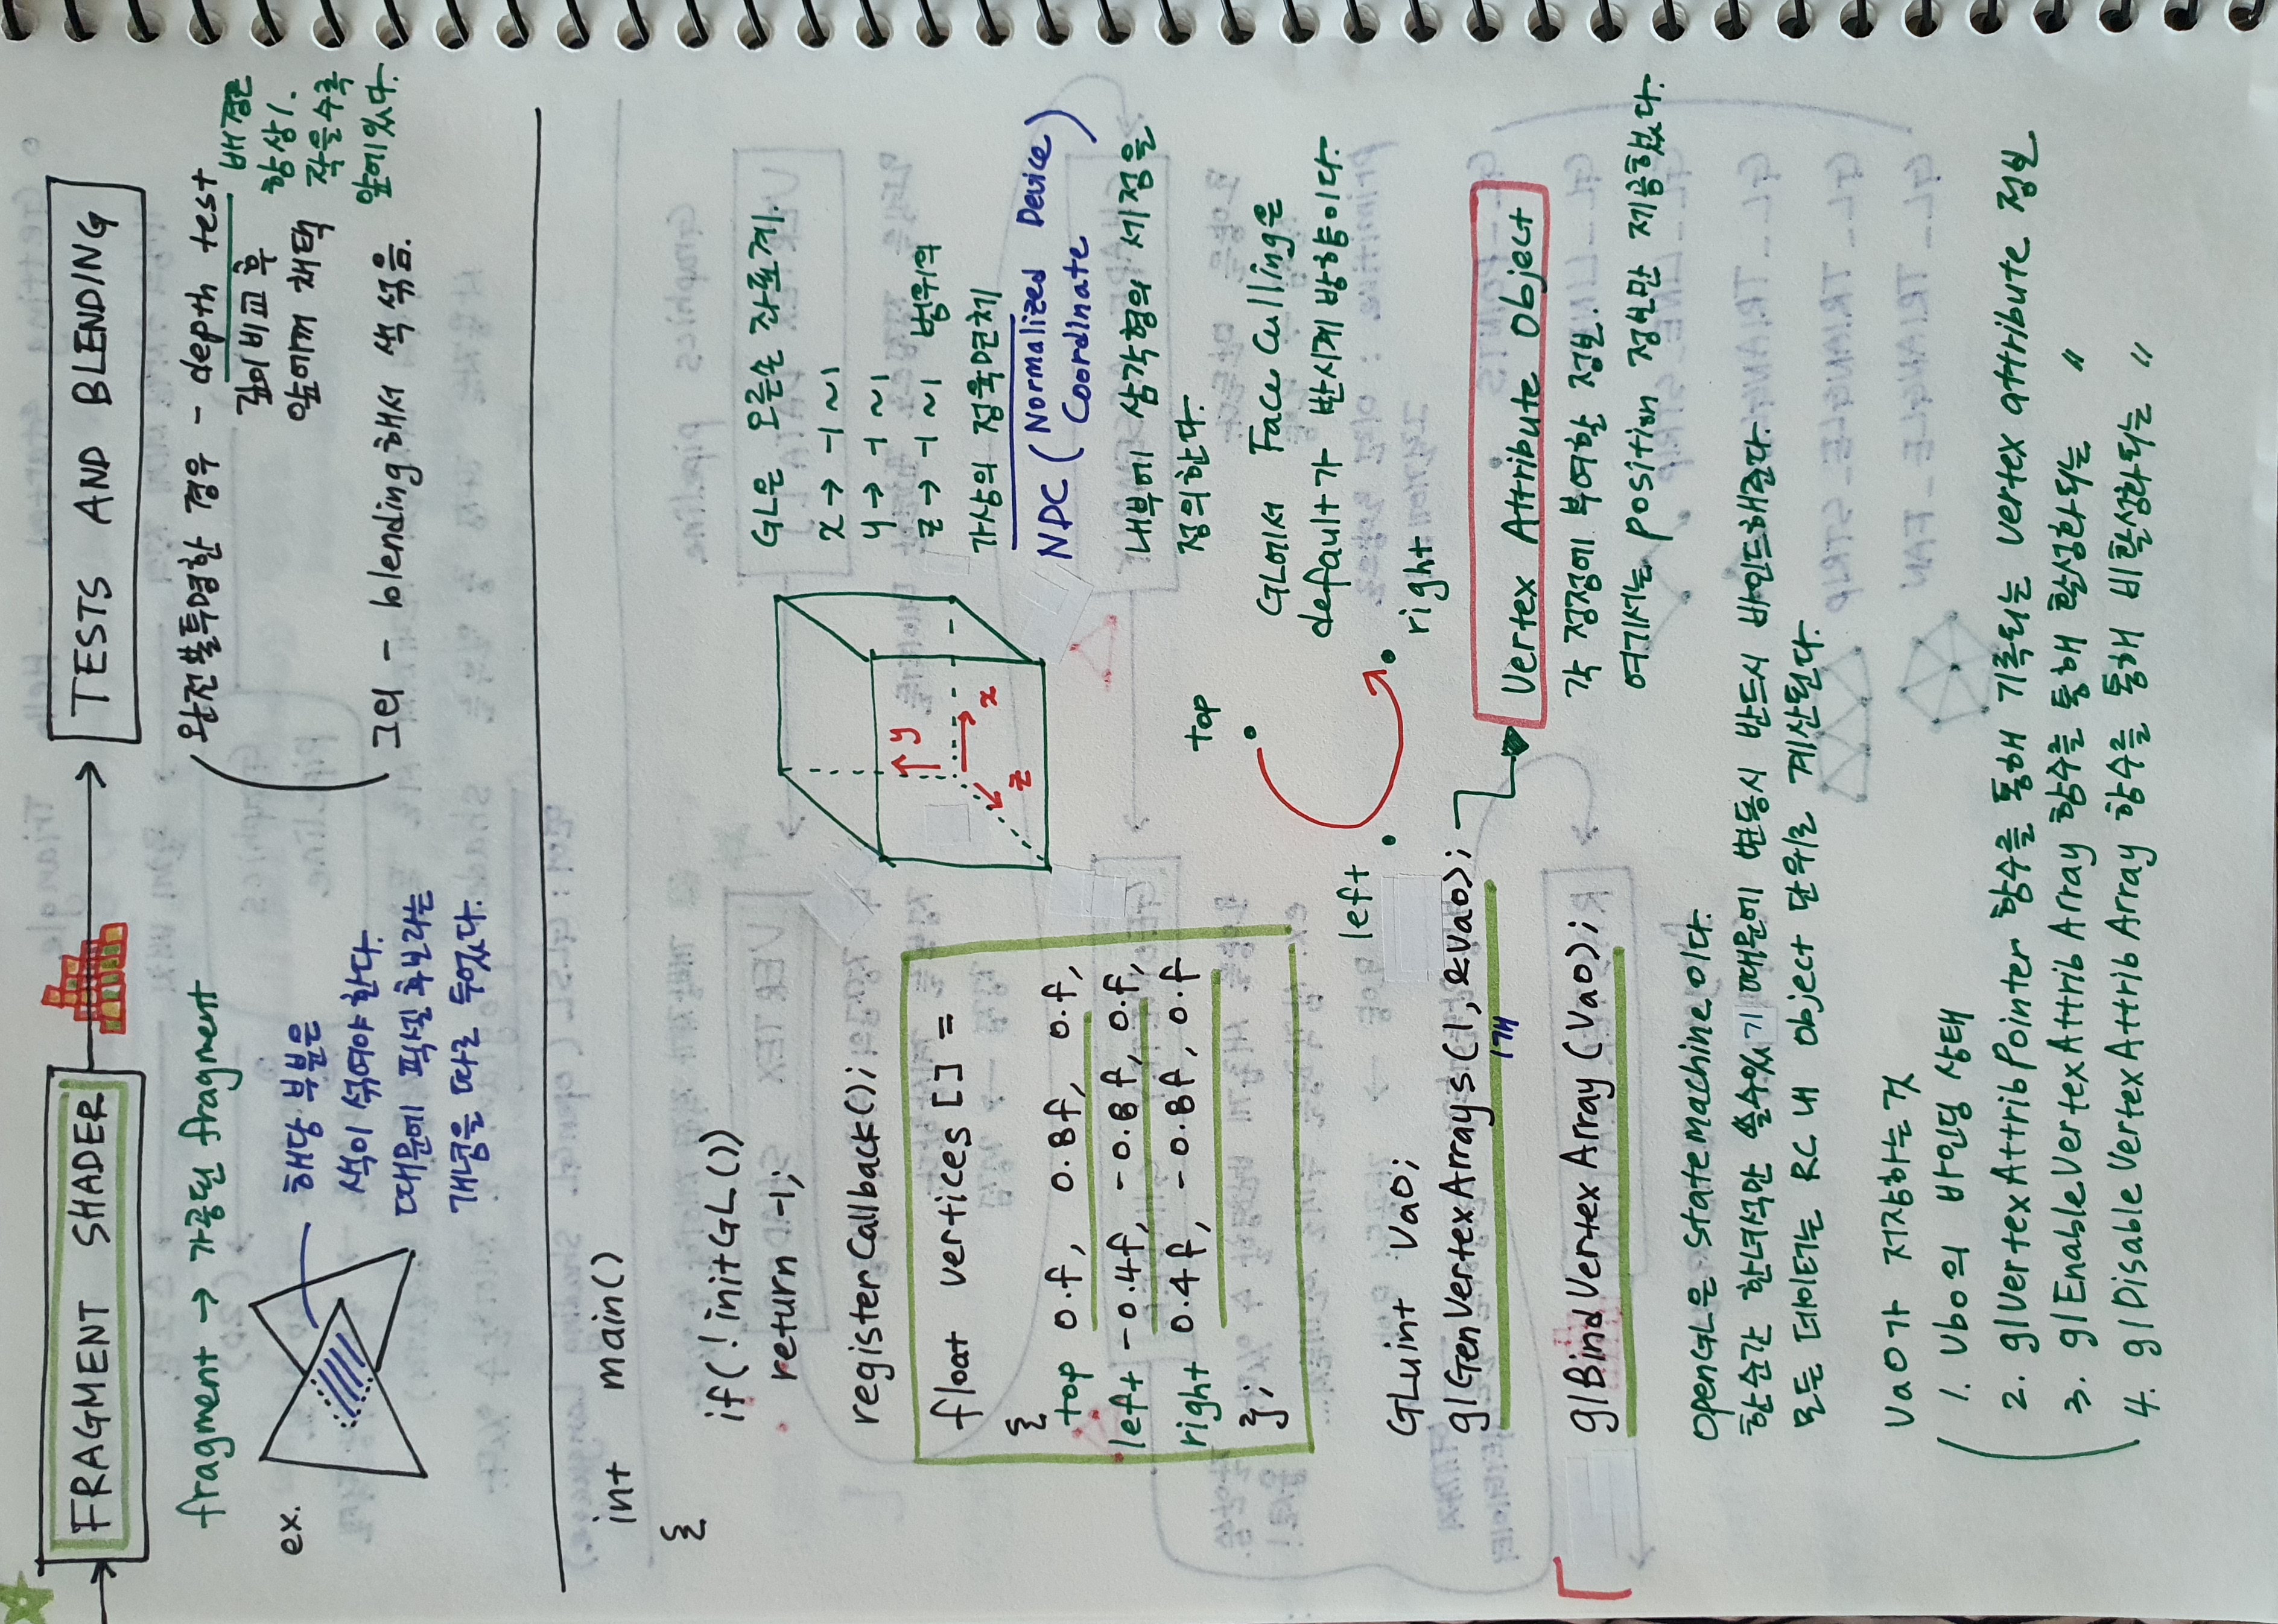 FRAGMENT SHADER
TESTS AND BLENDING
fragment → 가공된 fragment
ex.
해당 부분은
색이 섞여야 한다.
때문에 픽셀 후보라는
개념을 따로 두었다.
완전불투명한 경우 - depth test
깊이 비교 후
앞에꺼 채택
배경은
항상 1.
작을수록
앞에있다.
그외 - blending해서 색 섞음.
int main()
{
if(!initGL())
return -1;
registerCallback();
float vertices[] =
{
top 0.f, 0.8f, 0.f,
left -0.4f, -0.8f, 0.f,
right 0.4f, -0.8f, 0.f
};
y
x
z
GL은 오른손 좌표계.
x → -1 ~ 1
y → -1 ~ 1
z → -1 ~ 1 범위의
가상의 정육면체
NDC (Normalized Device
Coordinate)
내부에 삼각형의 세정점을
정의한다.
top
left
right
GL에서 Face Culling은
default가 반시계 방향이다.
GLuint VaO;
glGenVertexArrays(1, &VaO);
1개
Vertex Attribute Object
각 정점에 부여할 정보.
여기서는 position 정보만 제공했다.
glBindVertexArray(VaO);
OpenGL은 statemachine이다.
한순간 한녀석만 쓸수있기 때문에 변동시 반드시 바인드해준다.
모든 데이터는 RC 내 object 단위로 계산된다.
VaO가 저장하는 것
1. Vbo의 바인딩 상태
2. glVertexAttribPointer 함수를 통해 기록되는 vertex attribute 정보
3. glEnableVertexAttribArray 함수를 통해 활성화되는 〃
4. glDisableVertexAttribArray 함수를 통해 비활성화되는 〃